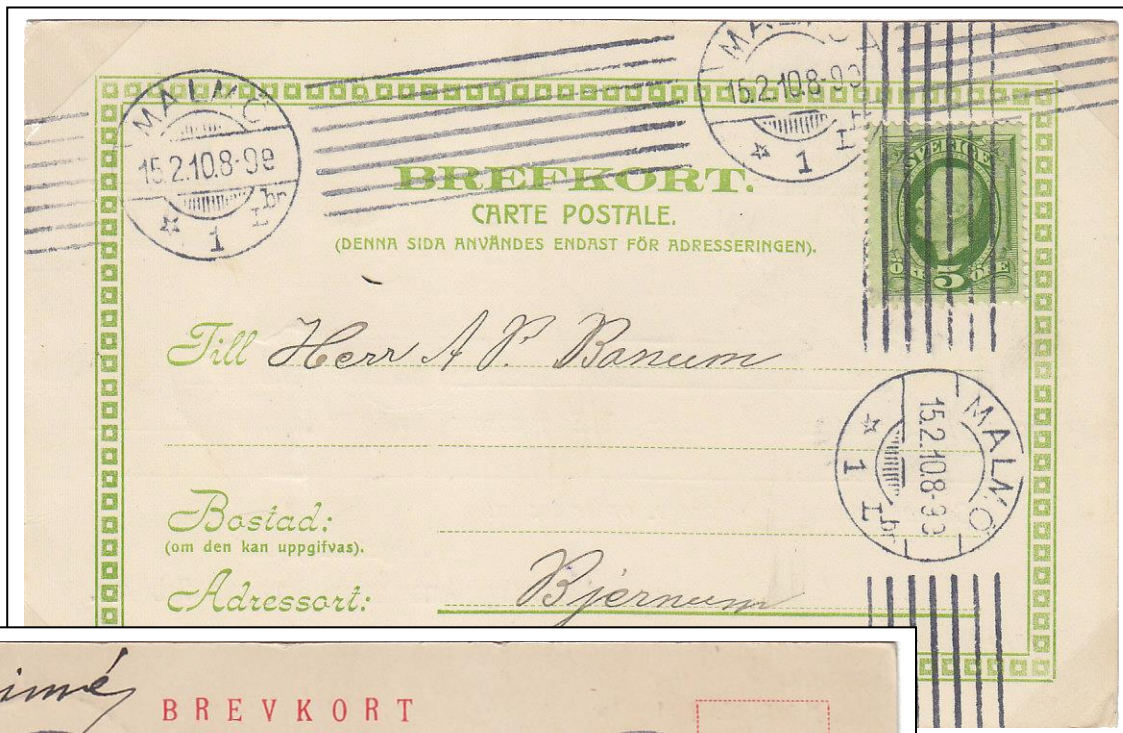 MALMÖ
15.2.10.8-9e
1 Lbr
MALMÖ
15.2.10.8-9e
1 L
SVERIGE
ÖRE 5 ÖRE
BREFKORT.
CARTE POSTALE.
(DENNA SIDA ANVÄNDES ENDAST FÖR ADRESSERINGEN).
Till Herr A P. Banum
MALMÖ
15.2.10.8-9e
1 Lbr
Bostad:
(om den kan uppgifvas).
Adressort: Bjernum
BREVKORT